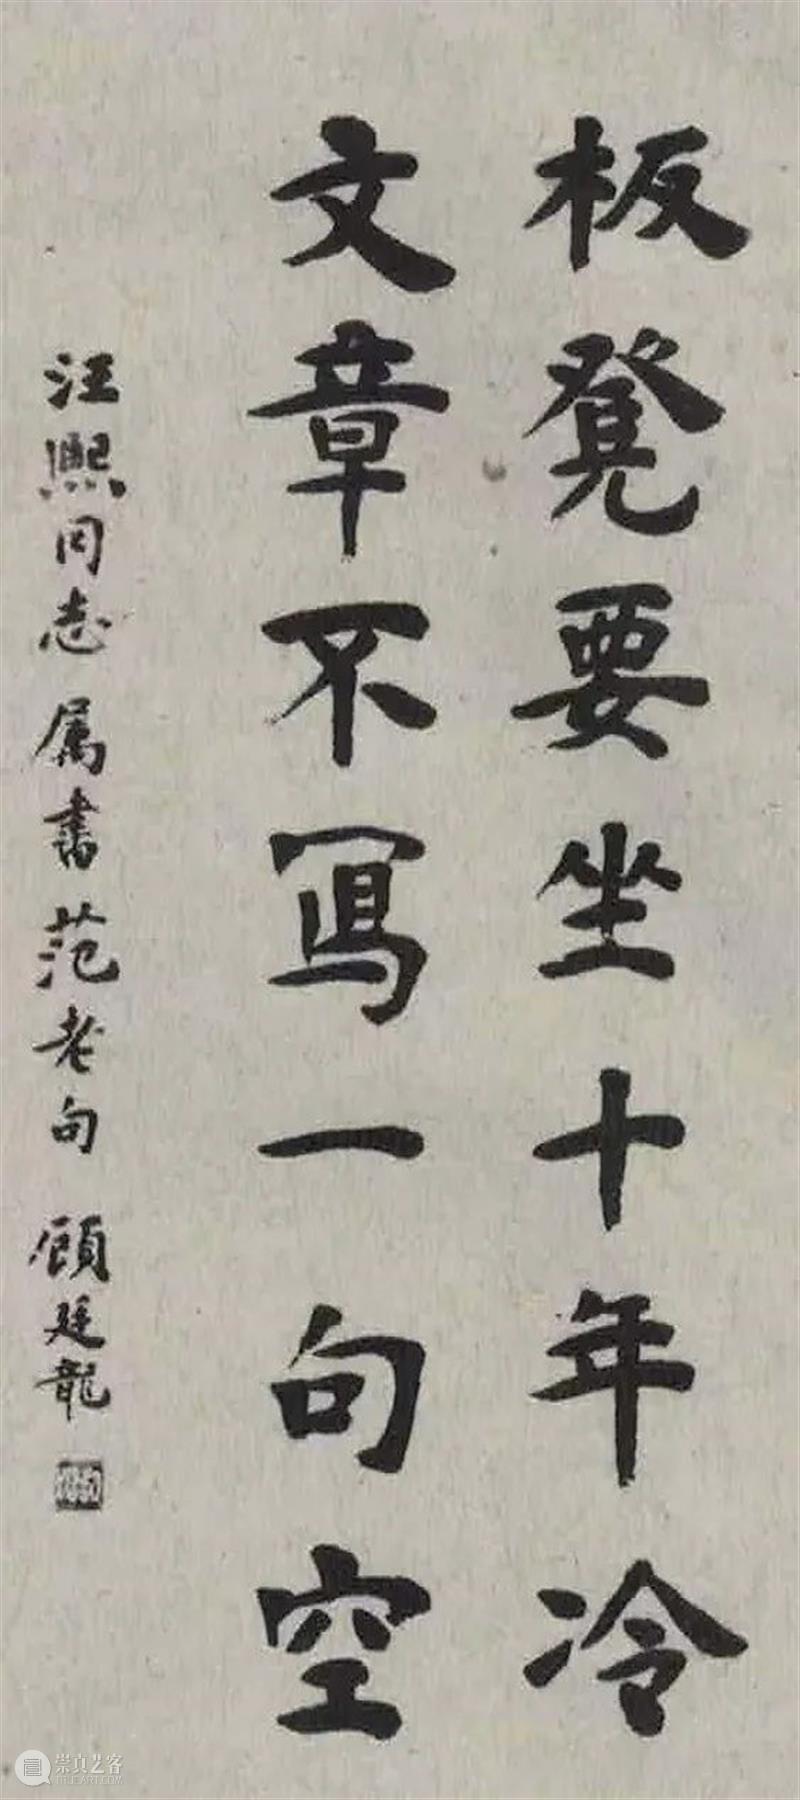 板凳要坐十年冷
文章不写一句空
汪熙同志属书范老句 顾廷龙
崇真艺客